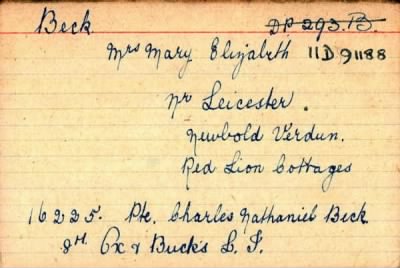 Beck DP 293.B.
Mrs Mary Elizabeth 11D91188
Nr Leicester.
Newbold Verdun.
Red Lion Cottages
16225. Pte. Charles Nathaniel Beck
8th Ox & Bucks L. I.